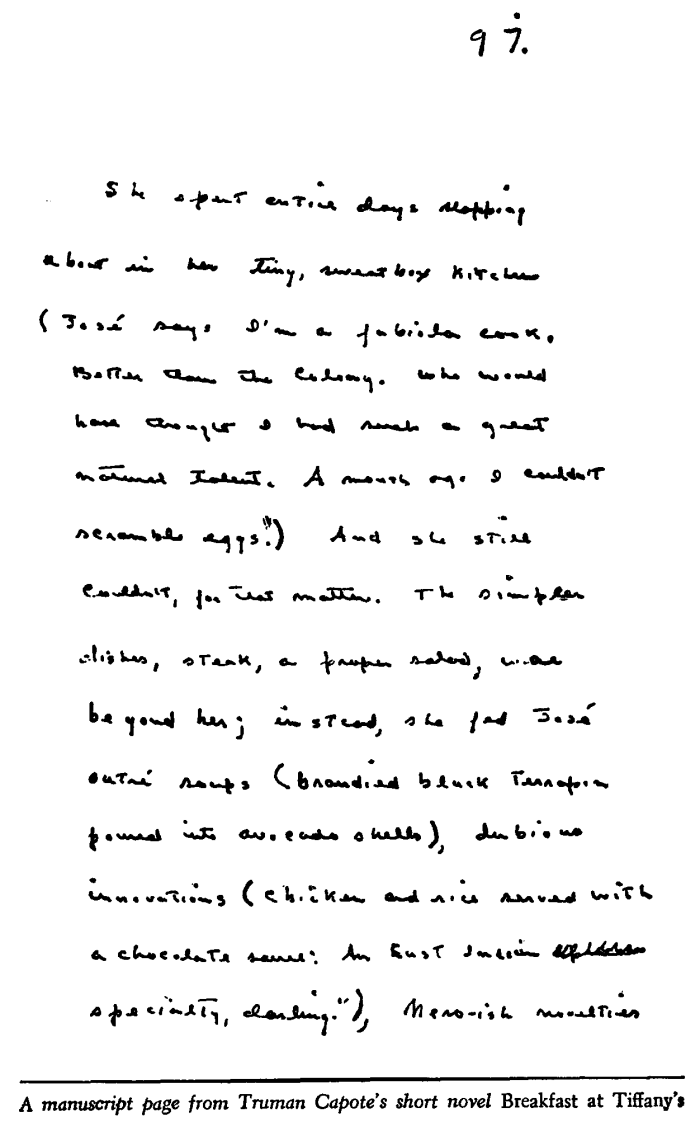 97.
She spent entire days slopping
about in her tiny, sweatbox kitchen
(José says I'm a fabiola cook.
Better than the Colony. Who would
have thought I had such a great
natural talent. A month ago I couldn't
scramble eggs.") And she still
couldn't, for that matter. The simpler
dishes, steak, a proper salad, were
beyond her; instead, she fed José
outré soups (brandied black terrapin
poured into avocado shells), dubious
innovations (chicken and rice served with
a chocolate sauce: An East Indian
specialty, darling."), Nero-ish novelties
A manuscript page from Truman Capote's short novel Breakfast at Tiffany's